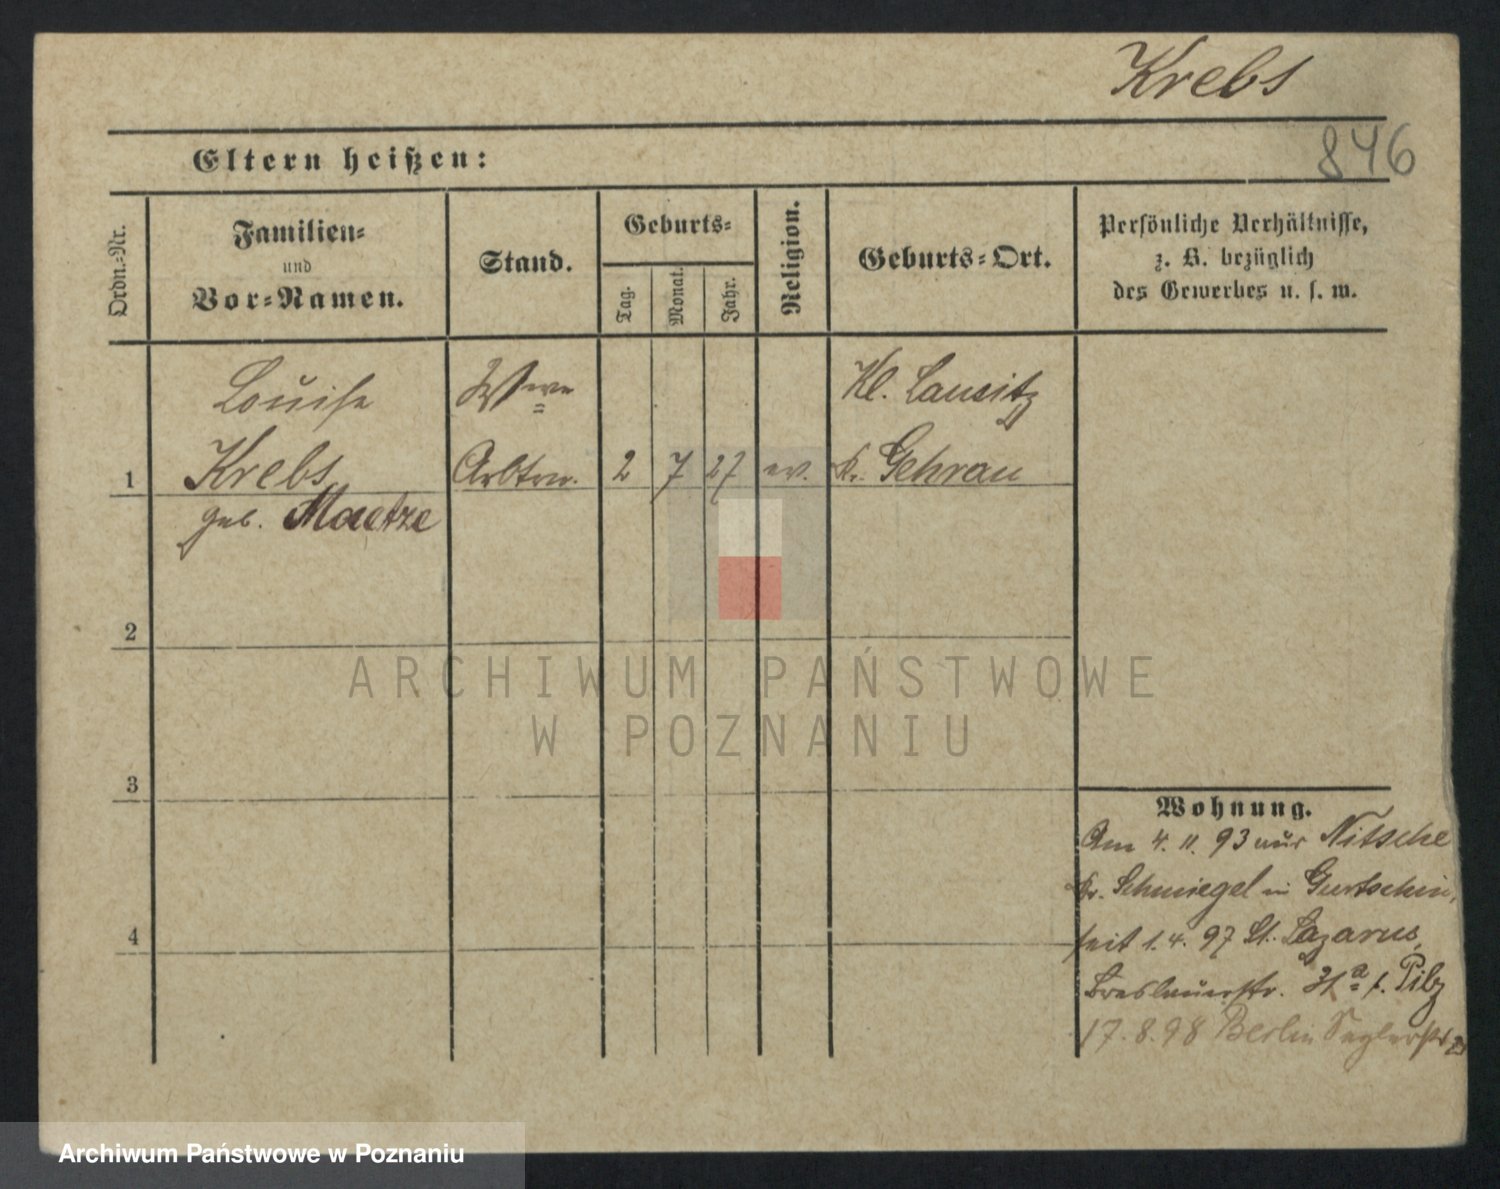 Krebs
846
Eltern heißen:
Ordn.-Nr.
Familien-
und
Vor-Namen.
Stand.
Geburts-
Tag.
Monat.
Jahr.
Religion.
Geburts-Ort.
Persönliche Verhältnisse,
z. B. bezüglich
des Gewerbes u. s. w.
Louise Wwe Kl. Lausitz
1 Krebs Arbtrn. 2 7 27 ev. Kr. Gehrau
geb. Maetze
2
3
4
Wohnung.
Am 4. 11. 93 aus Nitsche
Kr. Schmiegel in Gurtschin,
seit 1. 4. 97 St. Lazarus,
Breslauerstr. 31a b. Pilz
17. 8. 98 Berlin
ARCHIWUM PAŃSTWOWE
W POZNANIU
Archiwum Państwowe w Poznaniu